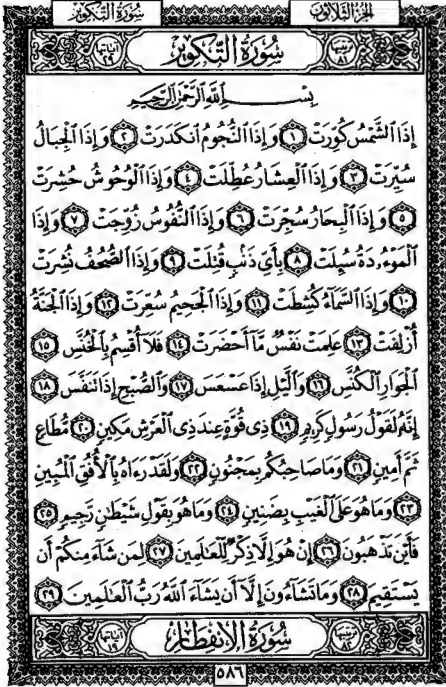 الجزء الثلاثون سورة التكوير
ترتيبها ٨١ سُورَةُ التَّكْوِيرِ آياتها ٢٩
بِسْمِ ٱللَّهِ ٱلرَّحْمَٰنِ ٱلرَّحِيمِ
إِذَا ٱلشَّمْسُ كُوِّرَتْ ١ وَإِذَا ٱلنُّجُومُ ٱنكَدَرَتْ ٢ وَإِذَا ٱلْجِبَالُ
سُيِّرَتْ ٣ وَإِذَا ٱلْعِشَارُ عُطِّلَتْ ٤ وَإِذَا ٱلْوُحُوشُ حُشِرَتْ
٥ وَإِذَا ٱلْبِحَارُ سُجِّرَتْ ٦ وَإِذَا ٱلنُّفُوسُ زُوِّجَتْ ٧ وَإِذَا
ٱلْمَوْءُۥدَةُ سُئِلَتْ ٨ بِأَىِّ ذَنۢبٍ قُتِلَتْ ٩ وَإِذَا ٱلصُّحُفُ نُشِرَتْ
١٠ وَإِذَا ٱلسَّمَآءُ كُشِطَتْ ١١ وَإِذَا ٱلْجَحِيمُ سُعِّرَتْ ١٢ وَإِذَا ٱلْجَنَّةُ
أُزْلِفَتْ ١٣ عَلِمَتْ نَفْسٌ مَّآ أَحْضَرَتْ ١٤ فَلَآ أُقْسِمُ بِٱلْخُنَّسِ ١٥
ٱلْجَوَارِ ٱلْكُنَّسِ ١٦ وَٱلَّيْلِ إِذَا عَسْعَسَ ١٧ وَٱلصُّبْحِ إِذَا تَنَفَّسَ ١٨
إِنَّهُۥ لَقَوْلُ رَسُولٍ كَرِيمٍ ١٩ ذِى قُوَّةٍ عِندَ ذِى ٱلْعَرْشِ مَكِينٍ ٢٠ مُّطَاعٍ
ثَمَّ أَمِينٍ ٢١ وَمَا صَاحِبُكُم بِمَجْنُونٍ ٢٢ وَلَقَدْ رَءَاهُ بِٱلْأُفُقِ ٱلْمُبِينِ
٢٣ وَمَا هُوَ عَلَى ٱلْغَيْبِ بِضَنِينٍ ٢٤ وَمَا هُوَ بِقَوْلِ شَيْطَٰنٍ رَّجِيمٍ ٢٥
فَأَيْنَ تَذْهَبُونَ ٢٦ إِنْ هُوَ إِلَّا ذِكْرٌ لِّلْعَٰلَمِينَ ٢٧ لِمَن شَآءَ مِنكُمْ أَن
يَسْتَقِيمَ ٢٨ وَمَا تَشَآءُونَ إِلَّآ أَن يَشَآءَ ٱللَّهُ رَبُّ ٱلْعَٰلَمِينَ ٢٩
ترتيبها ٨٢ سُورَةُ الِانفِطَارِ آياتها ١٩
٥٨٦